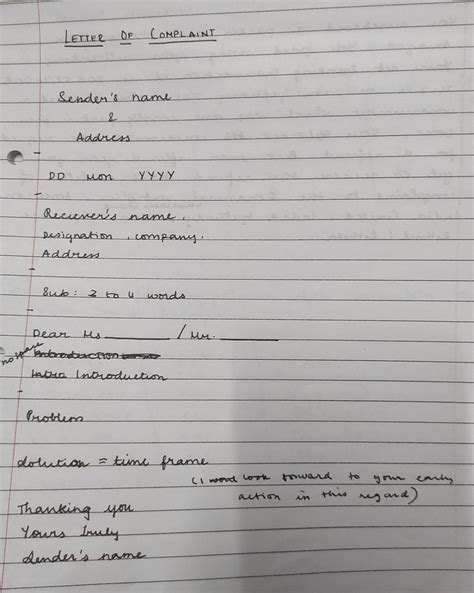 LETTER OF COMPLAINT
Sender's name
&
Address
DD Mon YYYY
Reciever's name,
Designation, company,
Address
Sub: 2 to 4 words
Dear Ms ________ / Mr. ________
no space
Introduction
Intro Introduction
Problem
Solution = time frame
(I word look forward to your early
action in this regard)
Thanking you
Yours truly
Sender's name